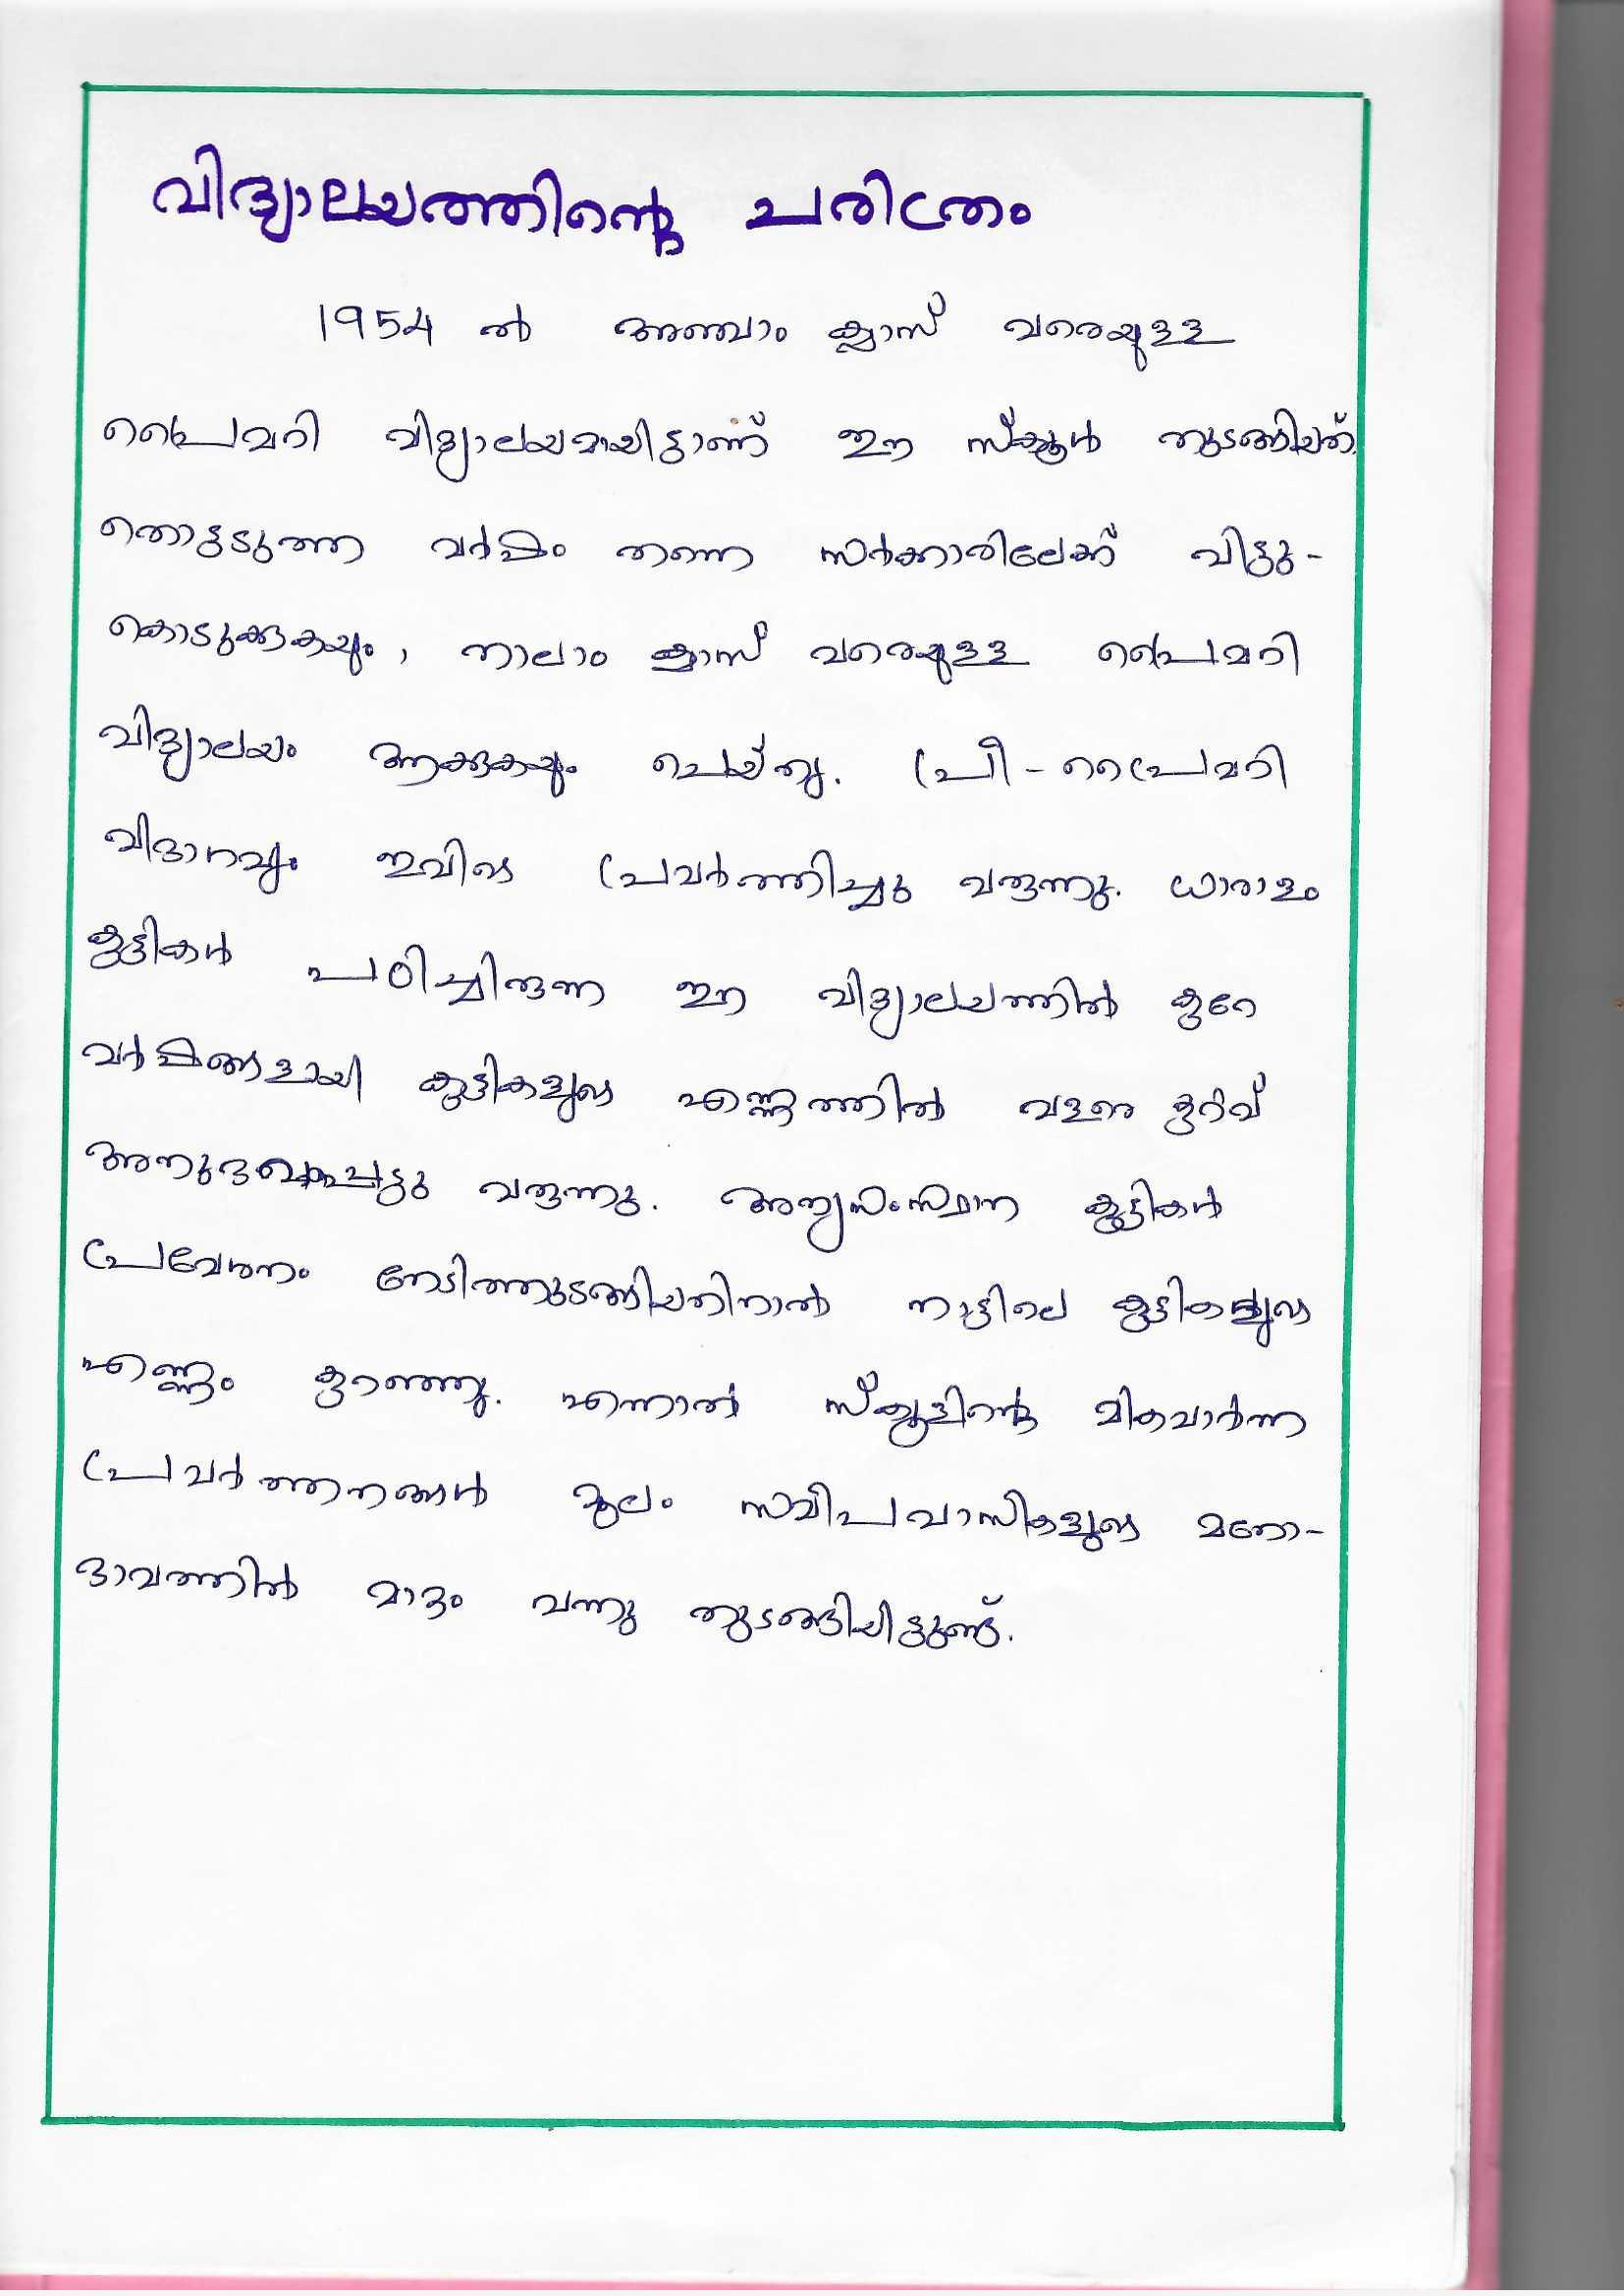 വിദ്യാലയത്തിന്റെ ചരിത്രം
1954 ൽ അഞ്ചാം ക്ലാസ് വരെയുള്ള
പ്രൈമറി വിദ്യാലയമായിട്ടാണ് ഈ സ്കൂൾ തുടങ്ങിയത്.
തൊട്ടടുത്ത വർഷം തന്നെ സർക്കാരിലേക്ക് വിട്ടു-
കൊടുക്കുകയും, നാലാം ക്ലാസ് വരെയുള്ള പ്രൈമറി
വിദ്യാലയം ആക്കുകയും ചെയ്തു. പ്രീ-പ്രൈമറി
വിഭാഗവും ഇവിടെ പ്രവർത്തിച്ചു വരുന്നു. ധാരാളം
കുട്ടികൾ പഠിച്ചിരുന്ന ഈ വിദ്യാലയത്തിൽ കുറേ
വർഷങ്ങളായി കുട്ടികളുടെ എണ്ണത്തിൽ വളരെ കുറവ്
അനുഭവപ്പെട്ടു വരുന്നു. അന്യസംസ്ഥാന കുട്ടികൾ
പ്രവേശനം നേടിത്തുടങ്ങിയതിനാൽ നാട്ടിലെ കുട്ടികളുടെ
എണ്ണം കുറഞ്ഞു. എന്നാൽ സ്കൂളിന്റെ മികവാർന്ന
പ്രവർത്തനങ്ങൾ മൂലം സമീപവാസികളുടെ മനോ-
ഭാവത്തിൽ മാറ്റം വന്നു തുടങ്ങിയിട്ടുണ്ട്.